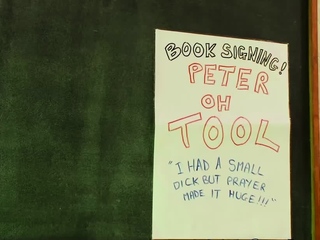 BOOK SIGNING!
PETER
OH
TOOL
"I HAD A SMALL
DICK BUT PRAYER
MADE IT HUGE!!!"